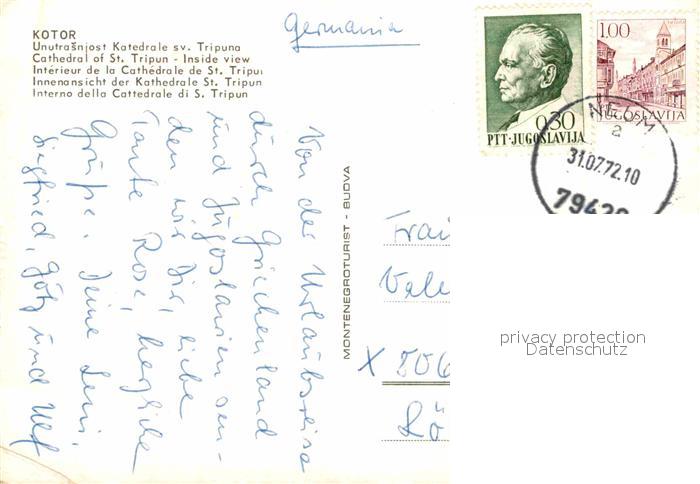 KOTOR
Unutrašnjost Katedrale sv. Tripuna
Cathedral of St. Tripun - Inside view
Intérieur de la Cathédrale de St. Tripun
Innenansicht der Kathedrale St. Tripun
Interno della Cattedrale di S. Tripun
Germania
0.30
PTT·JUGOSLAVIJA
1.00
JUGOSLAVIJA
NEUM
2
31.07.72.10
79420
Von der Urlaubsreise
durch Griechenland
und Jugoslavien sen-
den wir Dir, liebe
Tante Rose, herzliche
Grüße. Deine Leni,
Siegfried, Götz und Ulf
MONTENEGROTURIST - BUDVA
Frau
Vale
X 806
Lö
privacy protection
Datenschutz